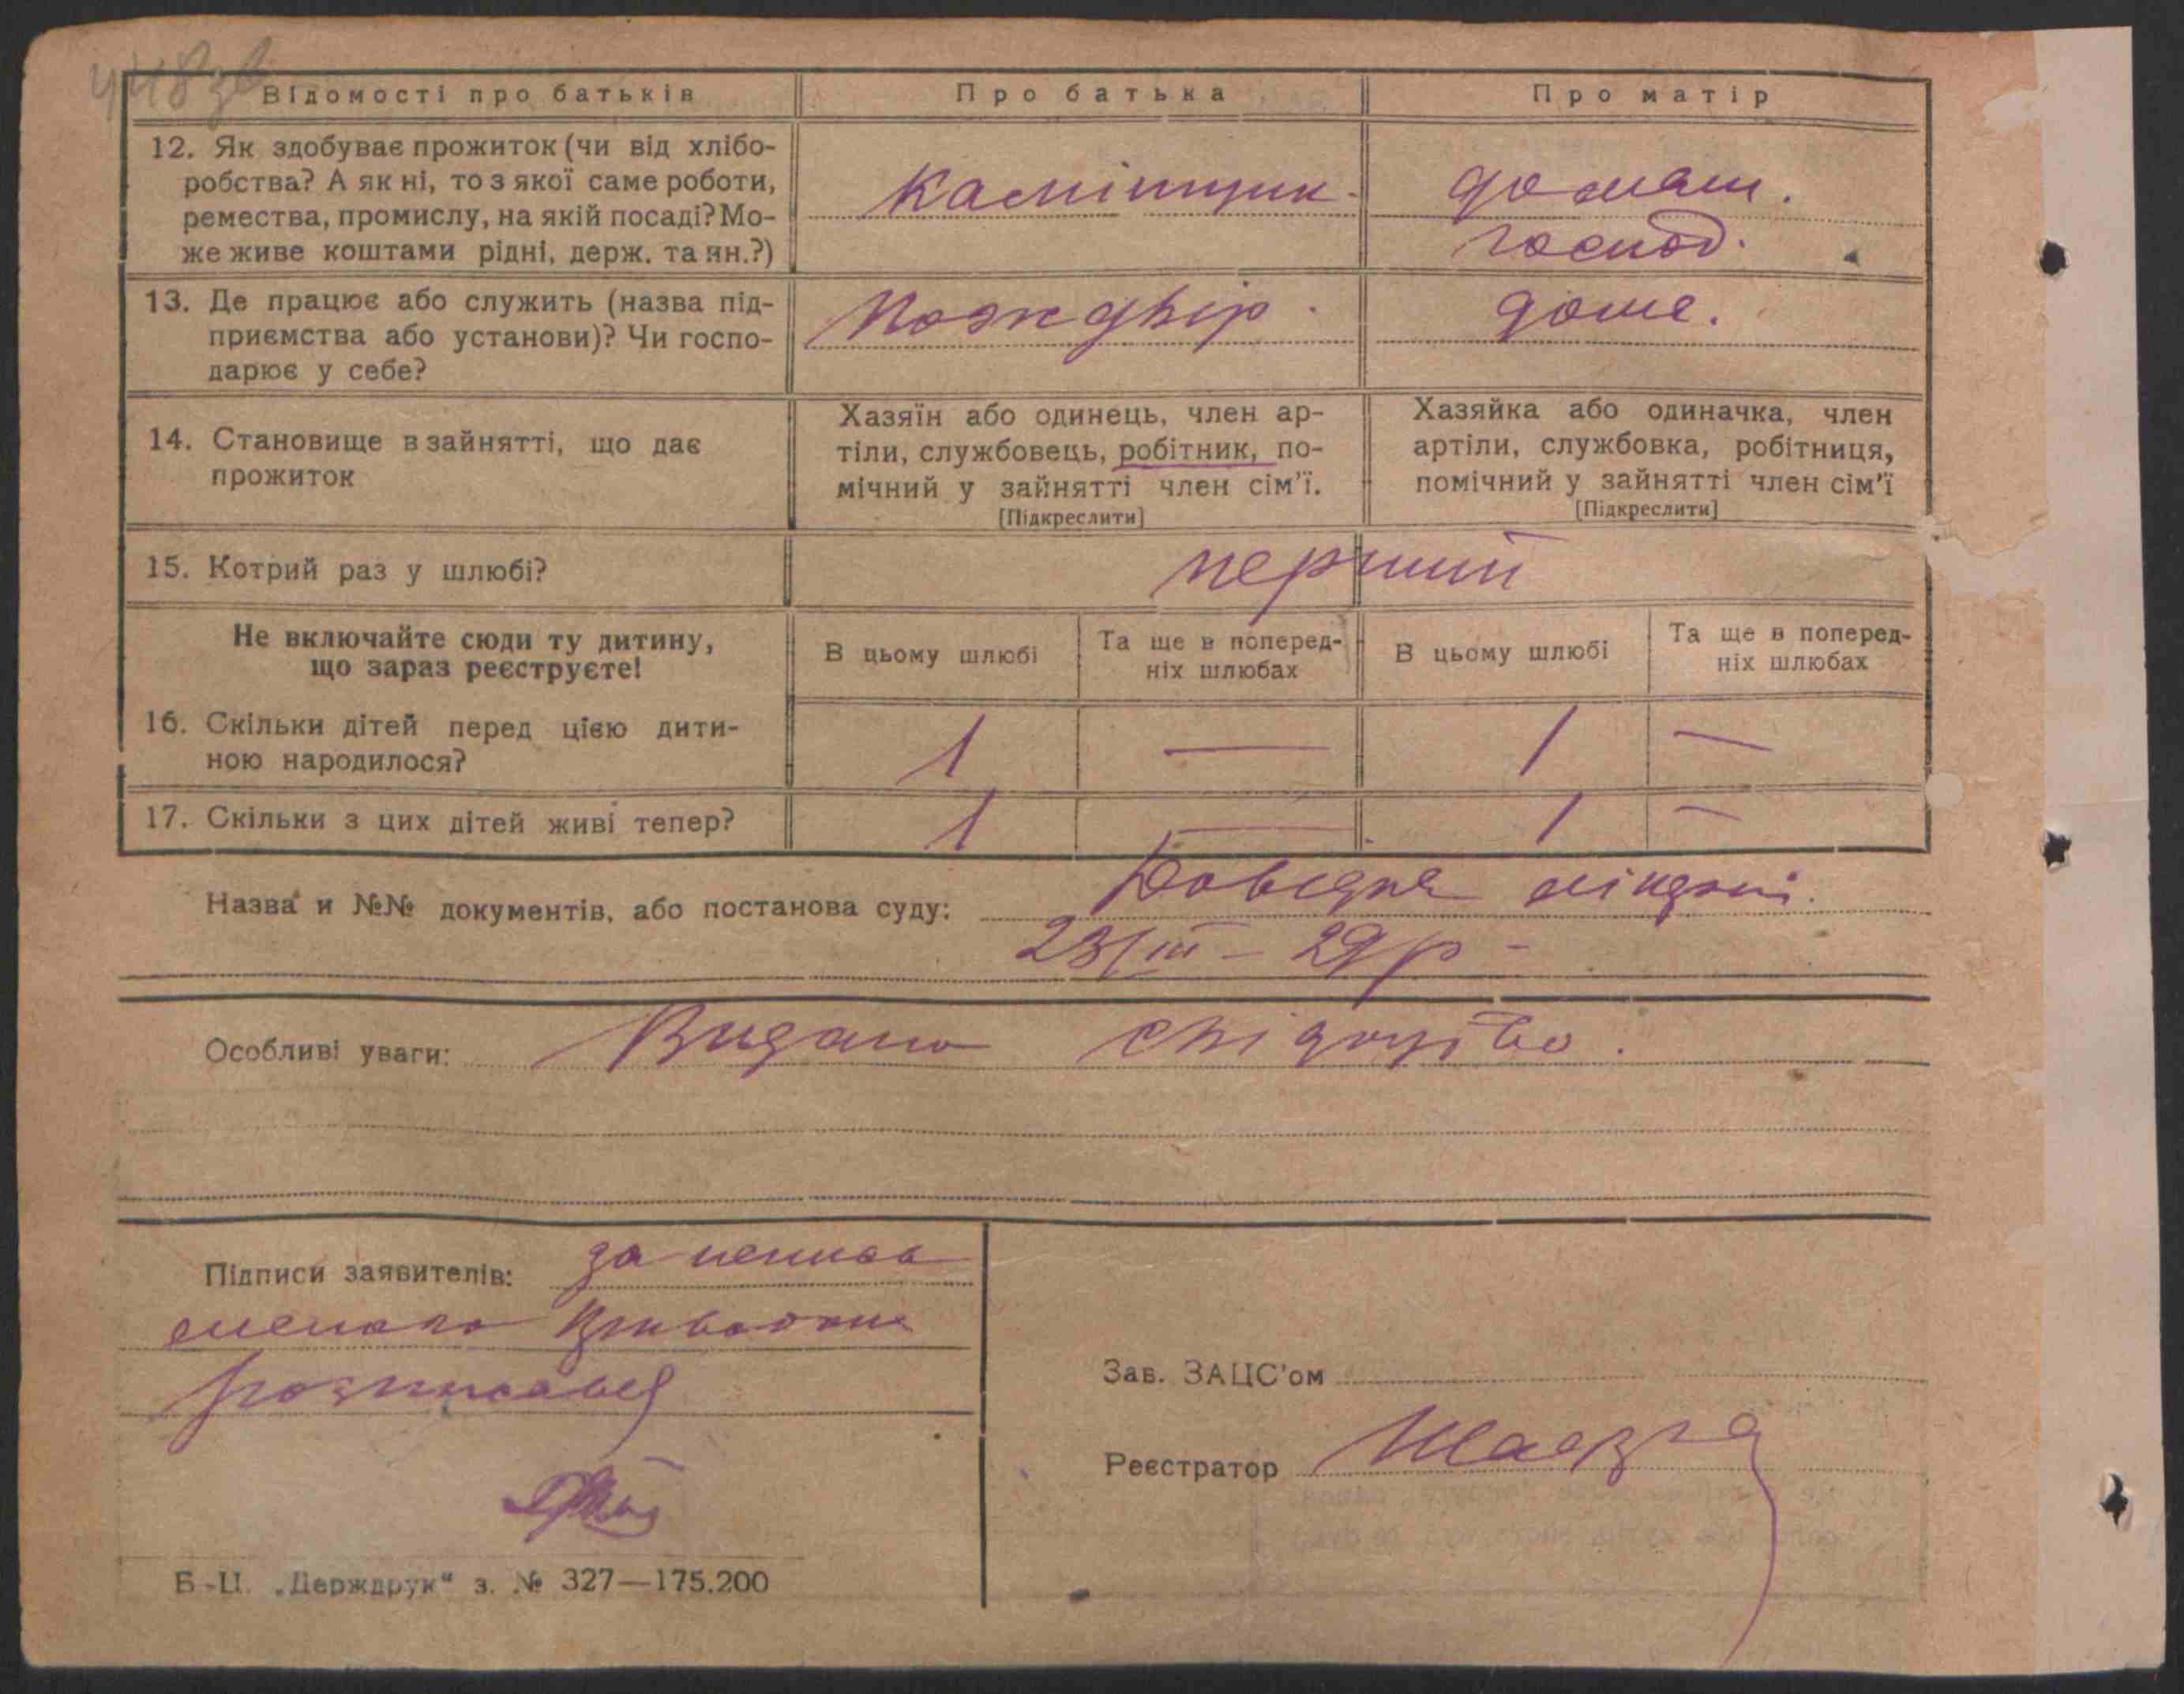 448зв
Відомості про батьків
Про батька
Про матір
12. Як здобуває прожиток (чи від хлібо-
робства? А як ні, то з якої саме роботи,
ремества, промислу, на якій посаді? Мо-
же живе коштами рідні, держ. та ин.?)
домаш.
господ.
13. Де працює або служить (назва під-
приємства або установи)? Чи госпо-
дарює у себе?
двір
доме.
14. Становище в зайнятті, що дає
прожиток
Хазяїн або одинець, член ар-
тіли, службовець, робітник, по-
мічний у зайнятті член сім'ї.
[Підкреслити]
Хазяйка або одиначка, член
артіли, службовка, робітниця,
помічний у зайнятті член сім'ї
[Підкреслити]
15. Котрий раз у шлюбі?
перший
Не включайте сюди ту дитину,
що зараз реєструєте!
В цьому шлюбі
Та ще в поперед-
ніх шлюбах
В цьому шлюбі
Та ще в поперед-
ніх шлюбах
16. Скільки дітей перед цією дити-
ною народилося?
1 — 1 —
17. Скільки з цих дітей живі тепер?
1 — 1 —
Назва и №№ документів, або постанова суду: Довідка лікарні.
23/III – 29 р –
Особливі уваги: Видано свідоцтво.
Підписи заявителів: за неписьменого
розписався
Зав. ЗАЦС'ом
Реєстратор
Б-Ц. „Держдрук“ з. № 327—175.200